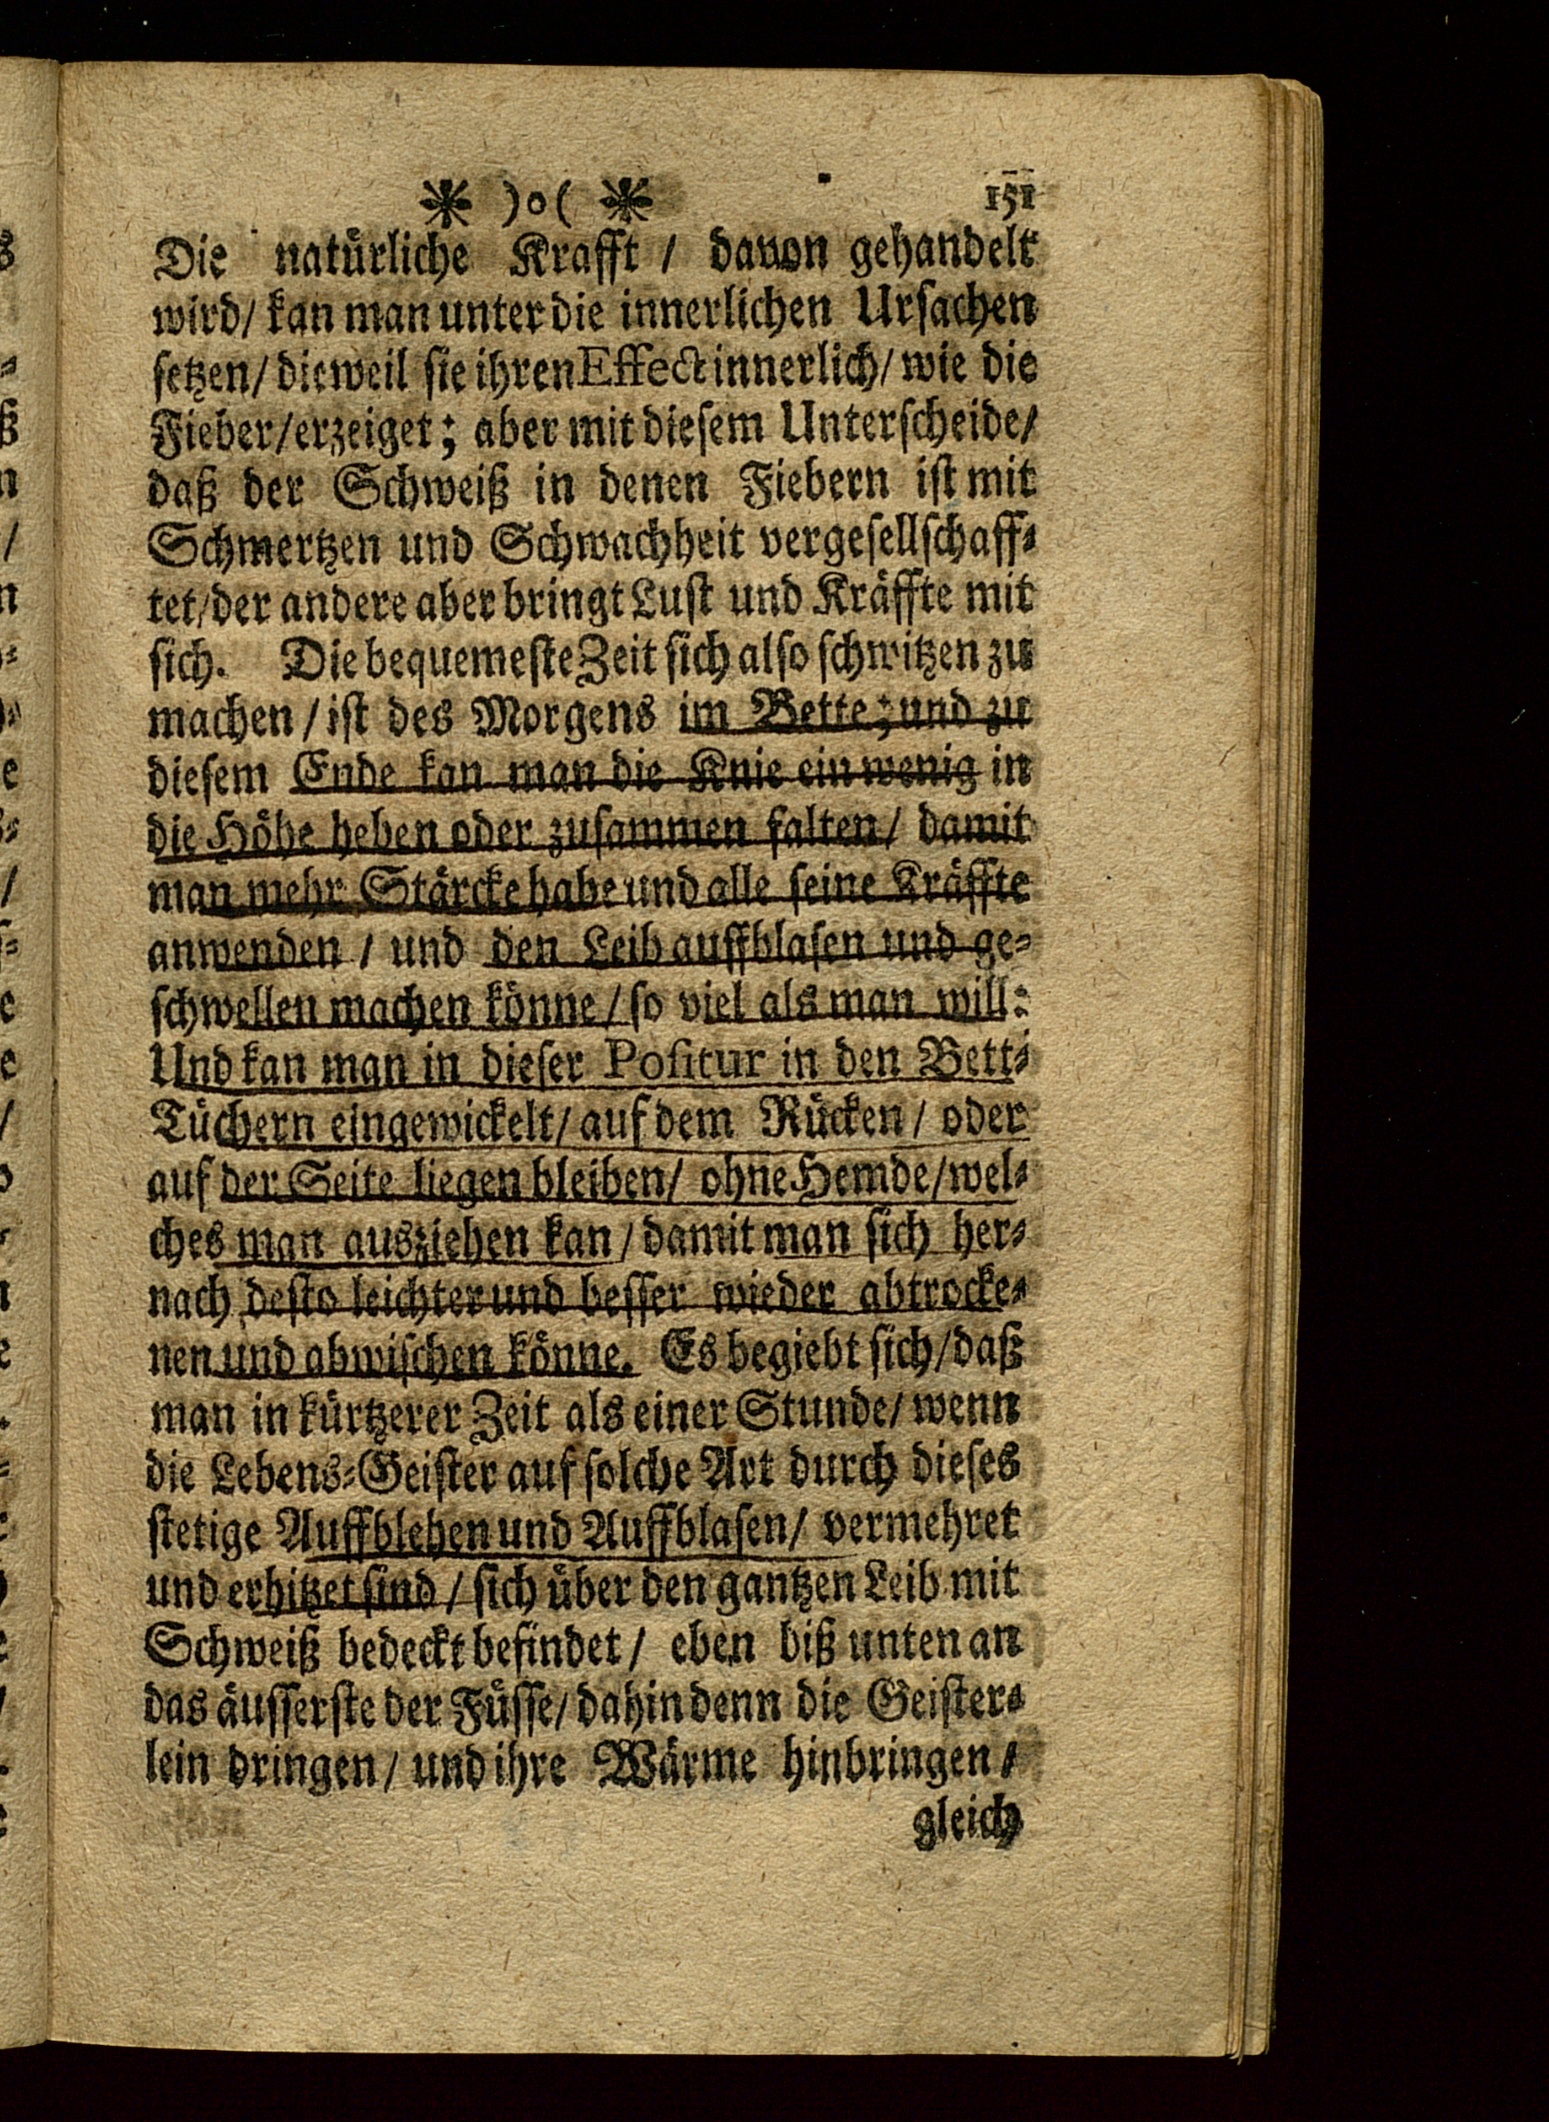 * )o( * 151
Die natürliche Krafft / davon gehandelt
wird/ kan man unter die innerlichen Ursachen
setzen/ dieweil sie ihren Effect innerlich/ wie die
Fieber/erzeiget; aber mit diesem Unterscheide/
daß der Schweiß in denen Fiebern ist mit
Schmertzen und Schwachheit vergesellschaff-
tet/der andere aber bringt Lust und Kräffte mit
sich. Die bequemeste Zeit sich also schwitzen zu
machen/ ist des Morgens im Bette; und zu
diesem Ende kan man die Knie ein wenig in
die Höhe heben oder zusammen falten/ damit
man mehr Stärcke habe und alle seine Kräffte
anwenden / und den Leib auffblasen und ge-
schwellen machen könne/ so viel als man will:
Und kan man in dieser Positur in den Bett-
Tüchern eingewickelt/ auf dem Rücken/ oder
auf der Seite liegen bleiben/ ohne Hemde/wel-
ches man ausziehen kan/ damit man sich her-
nach desto leichter und besser wieder abtrocke-
nen und abwischen könne. Es begiebt sich/daß
man in kürtzerer Zeit als einer Stunde/ wenn
die Lebens-Geister auf solche Art durch dieses
stetige Auffblehen und Auffblasen/ vermehret
und erhitzet sind/ sich über den gantzen Leib mit
Schweiß bedeckt befindet/ eben biß unten an
das äusserste der Füsse/ dahin denn die Geister-
lein dringen/ und ihre Wärme hinbringen/
gleich